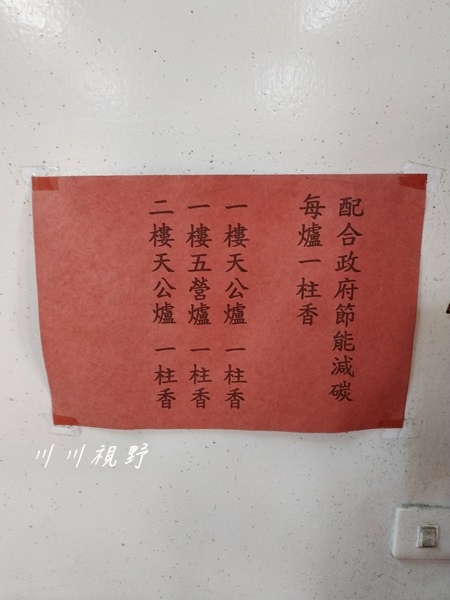 配合政府節能減碳
每爐一柱香
一樓天公爐 一柱香
一樓五營爐 一柱香
二樓天公爐 一柱香
川川視野